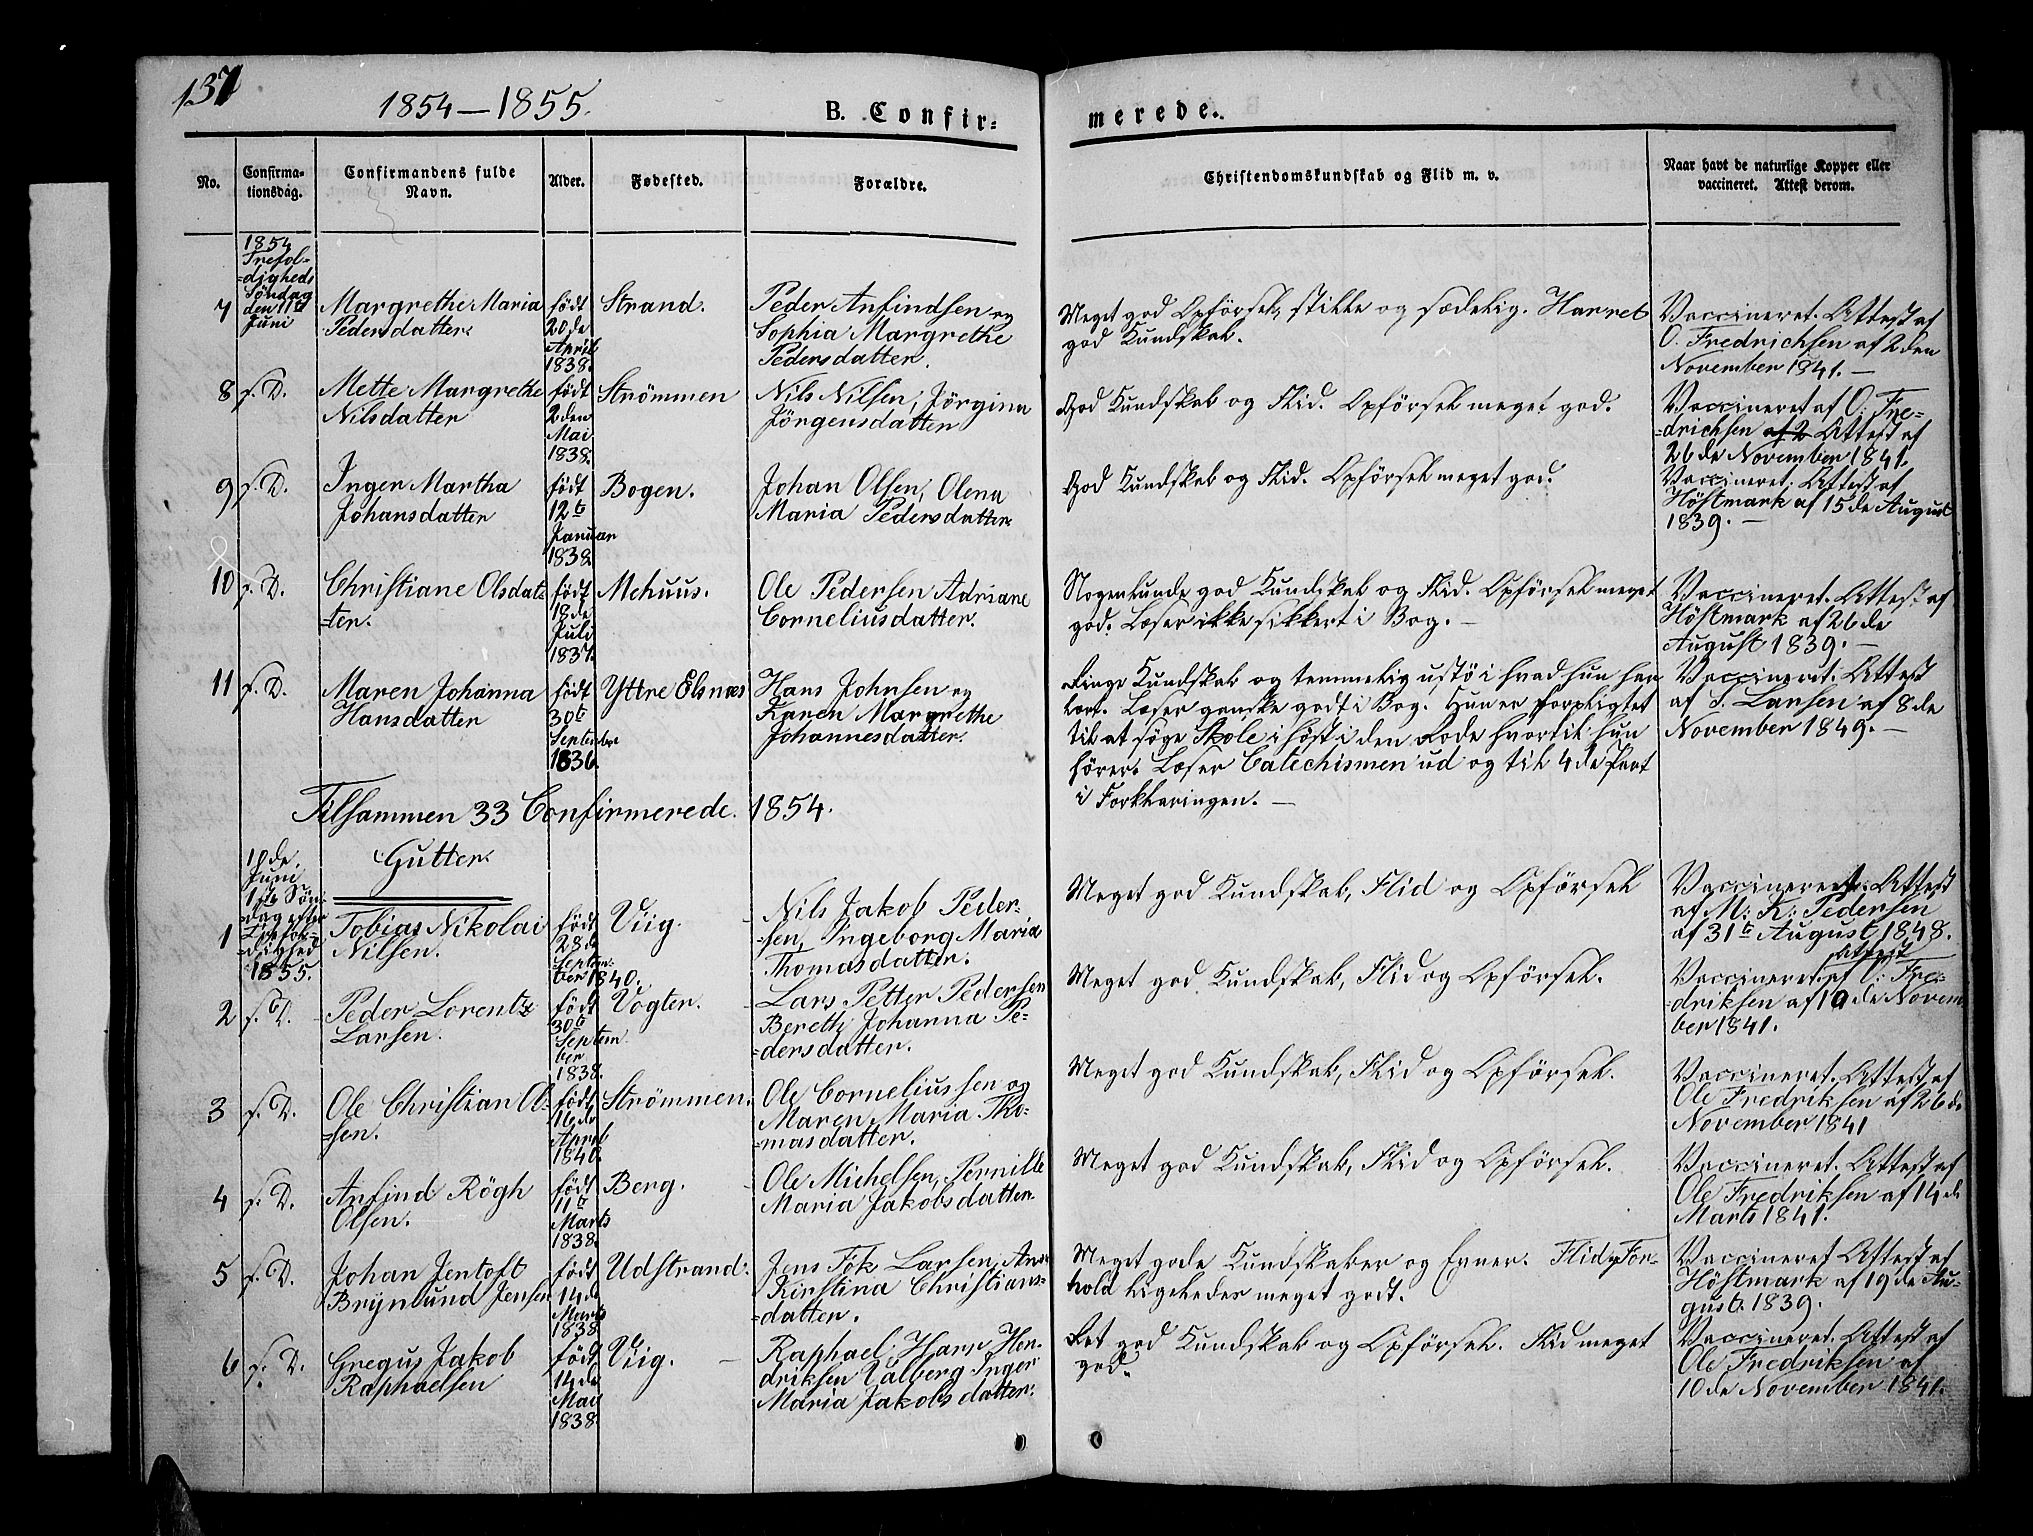 137
1854–1855.
B. Confirmerede.
No.
Confirma-
tionsdag.
Confirmandens fulde
Navn.
Alder.
Fødested.
Forældre.
Christendomskundskab og Flid m. v.
Naar havt de naturlige Kopper eller
vaccineret. Attest derom.
1854
Trefol-
=digheds
Söndag
den 11te
Juni
7
Margrethe Maria
Pedersdatter
født
20de
April
1838.
Strand.
Peder Anfindsen og
Sophia Margrethe
Pedersdatter.
Meget god Opförsel, stille og sædelig. Harret
god Kundskab.
Vaccineret. Attest af
O. Fredrichsen af 2den
November 1841. –
8 f. D.
Mette Margrethe
Nilsdatter
født
2den
Mai
1838.
Strömmen
Nils Nilsen, Jörgina
Jörgensdatter
God Kundskab og Flid. Opförsel meget god.
Vaccineret af O: Fre-
=drichsen af 2 Attest af
26de November 1841.
9 f. D.
Inger Martha
Johansdatter
født
12te
Januar
1838
Bogen.
Johan Olsen, Olena
Maria Pedersdatter
God Kundskab og Flid. Opförsel meget god.
Vaccineret. Attest af
Höstmark af 15de August
1839. –
10 f. D.
Christiane Olsdat-
=ter.
født
18de
Juli
1837.
Mehuus.
Ole Pedersen Adriane
Corneliusdatter.
Nogenlunde god Kundskab og Flid. Opförsel meget
god. Læser ikke sikkert i Bog. –
Vaccineret. Attest af
Höstmark af 26de
August 1839. –
11 f. D.
Maren Johanna
Hansdatter
født
30te
September
1836.
Yttre Elsnæs
Hans Johnsen og
Karen Margrethe
Johannesdatter.
Ringe Kundskab og temmelig ustö i hvad hun har
lært. Læser ganske godt i Bog. Hun er forpligtet
til at söge Skole i höst i den Rode hvortil hun
hörer. Læser Catechismen ud og til 4de Part
i Forklaringen. –
Vaccineret. Attest
af S. Larsen af 8de
November 1849. –
Tilsammen 33 Confirmerede. 1854.
Gutter.
10de
Juni
1ste Sön-
dag efter
Trefol-
dighed
1855.
1
Tobias Nikolai
Nilsen.
født
28de
Septem-
ber 1840.
Viig.
Nils Jakob Peder-
=sen, Ingeborg Maria
Thomasdatter.
Meget god Kundskab, Flid og Opförsel
Vaccineret. Attest
af M: K: Pedersen
af 31te August 1848.
2 f. D.
Peder Lorents
Larsen.
født
30te
Septem
ber
1838.
Vogter.
Lars Petter Pedersen
Bereth Johanna Pe-
=dersdatter.
Meget god Kundskab, Flid og Opförsel.
Attest
Vaccineret. af O: Fre-
=driksen af 10de Novem
ber 1841.
3 f. D.
Ole Christian Ol-
=sen.
født
16de
April
1840.
Strömmen.
Ole Corneliussen og
Maren Maria Tho-
=masdatter.
Meget god Kundskab, Flid og Opförsel.
Vaccineret. Attest af
Ole Fredriksen af 26de
November 1841
4 f. D.
Anfind Rögh
Olsen.
født
11te
Marts
1838.
Berg.
Ole Michelsen, Pernille
Maria Jakobsdatter.
Meget god Kundskab, Flid og Opförsel.
Vaccineret. Attest af
Ole Fredriksen af 14de
Marts 1841.
5 f. D.
Johan Jentoft
Brynlund Jensen
født
14de
Marts
1838
Udstrand.
Jens Fok Larsen, Anne
Kirstina Christians-
=datter.
Meget gode Kundskaber og Evner. Flid og For-
hold ligeledes meget godt.
Vaccineret Attest af
Höstmark af 19de Au-
gust 1839.
6 f. D.
Gregus Jakob
Raphaelsen
født
14de
Mai
1838.
Viig. –
Raphael Hans Hen-
driksen Valberg Inger
Maria Jakobsdatter.
Ret god Kundskab og Opförsel. Flid meget
god.
Vaccineret. Attest af
Ole Fredriksen af
10de November 1841.